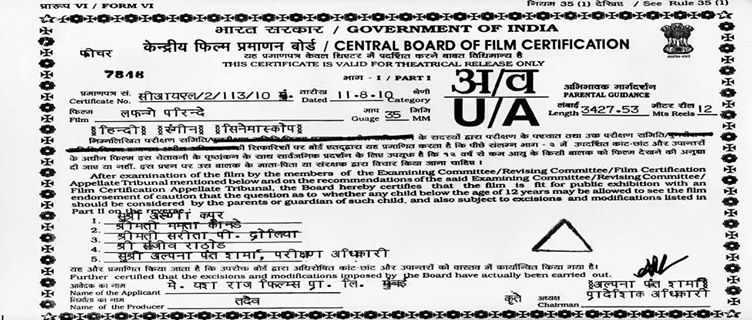 प्रारूप VI / FORM VI
नियम 35 (1) देखिए / See Rule 35 (1)
भारत सरकार / GOVERNMENT OF INDIA
फीचर
केन्द्रीय फिल्म प्रमाणन बोर्ड / CENTRAL BOARD OF FILM CERTIFICATION
यह प्रमाणपत्र केवल थिएटर में प्रदर्शित करने बाबत विधिमान्य है
THIS CERTIFICATE IS VALID FOR THEATRICAL RELEASE ONLY
7846
भाग - I / PART I
प्रमाणपत्र सं. सीआयएल/2/113/10 मुं. तारीख श्रेणी
Certificate No. Dated 11-8-10 Category
अ/व
U/A
अभिभावक मार्गदर्शन
PARENTAL GUIDANCE
फिल्म लफंगे परिन्दे माप मिमि
Film Guage 35 MM
लंबाई मीटर रील
Length 3427.53 Mts Reels 12
हिन्दी रंगीन सिनेमास्कोप
निम्नलिखित परीक्षण समिति के सदस्यों द्वारा परीक्षण के पश्चात तथा उक्त परीक्षण समिति
की सिफारिशों पर बोर्ड एतद्द्वारा यह प्रमाणित करता है कि पीछे संलग्न भाग - २ में उपदर्शित कांट-छांट और उपान्तरों
के अधीन फिल्म इस चेतावनी के पृष्ठांकन के साथ सार्वजनिक प्रदर्शन के लिए उपयुक्त है कि १२ वर्ष से कम आयु के किसी बालक को फिल्म देखने की अनुज्ञा
दी जाय या नहीं, इस प्रश्न पर उस बालक के माता-पिता या संरक्षक द्वारा विचार किया जाना चाहिये ।
After examination of the film by the members of the Examining Committee/Revising Committee/Film Certification
Appellate Tribunal mentioned below and on the recommendations of the said Examining Committee/Revising Committee/
Film Certification Appellate Tribunal, the Board hereby certifies that the film is fit for public exhibition with an
endorsement of caution that the question as to whether any child below the age of 12 years may be allowed to see the film
should be considered by the parents or guardian of such child, and also subject to excisions and modifications listed in
Part II on the reverse.
1. सुश्री कपूर
2. श्रीमती ममता कानडे
3. श्रीमती सरीता पी. ढोलिया
4. श्री संजीव राठोड
5. सुश्री अल्पना पंत शर्मा, परीक्षण अधिकारी
यह और प्रमाणित किया जाता है कि उपरोक्त बोर्ड द्वारा अधिरोपित कांट-छांट और उपान्तरों को वास्तव में कार्यान्वित किया गया है।
Further certified that the excisions and modifications imposed by the Board have actually been carried out.
आवेदक का नाम मे. यश राज फिल्म्स प्रा. लि. मुंबई
Name of the Applicant
निर्माता का नाम तदैव
Name of the Producer
कृते अध्यक्ष
Chairman
अल्पना पंत शर्मा
प्रादेशिक अधिकारी